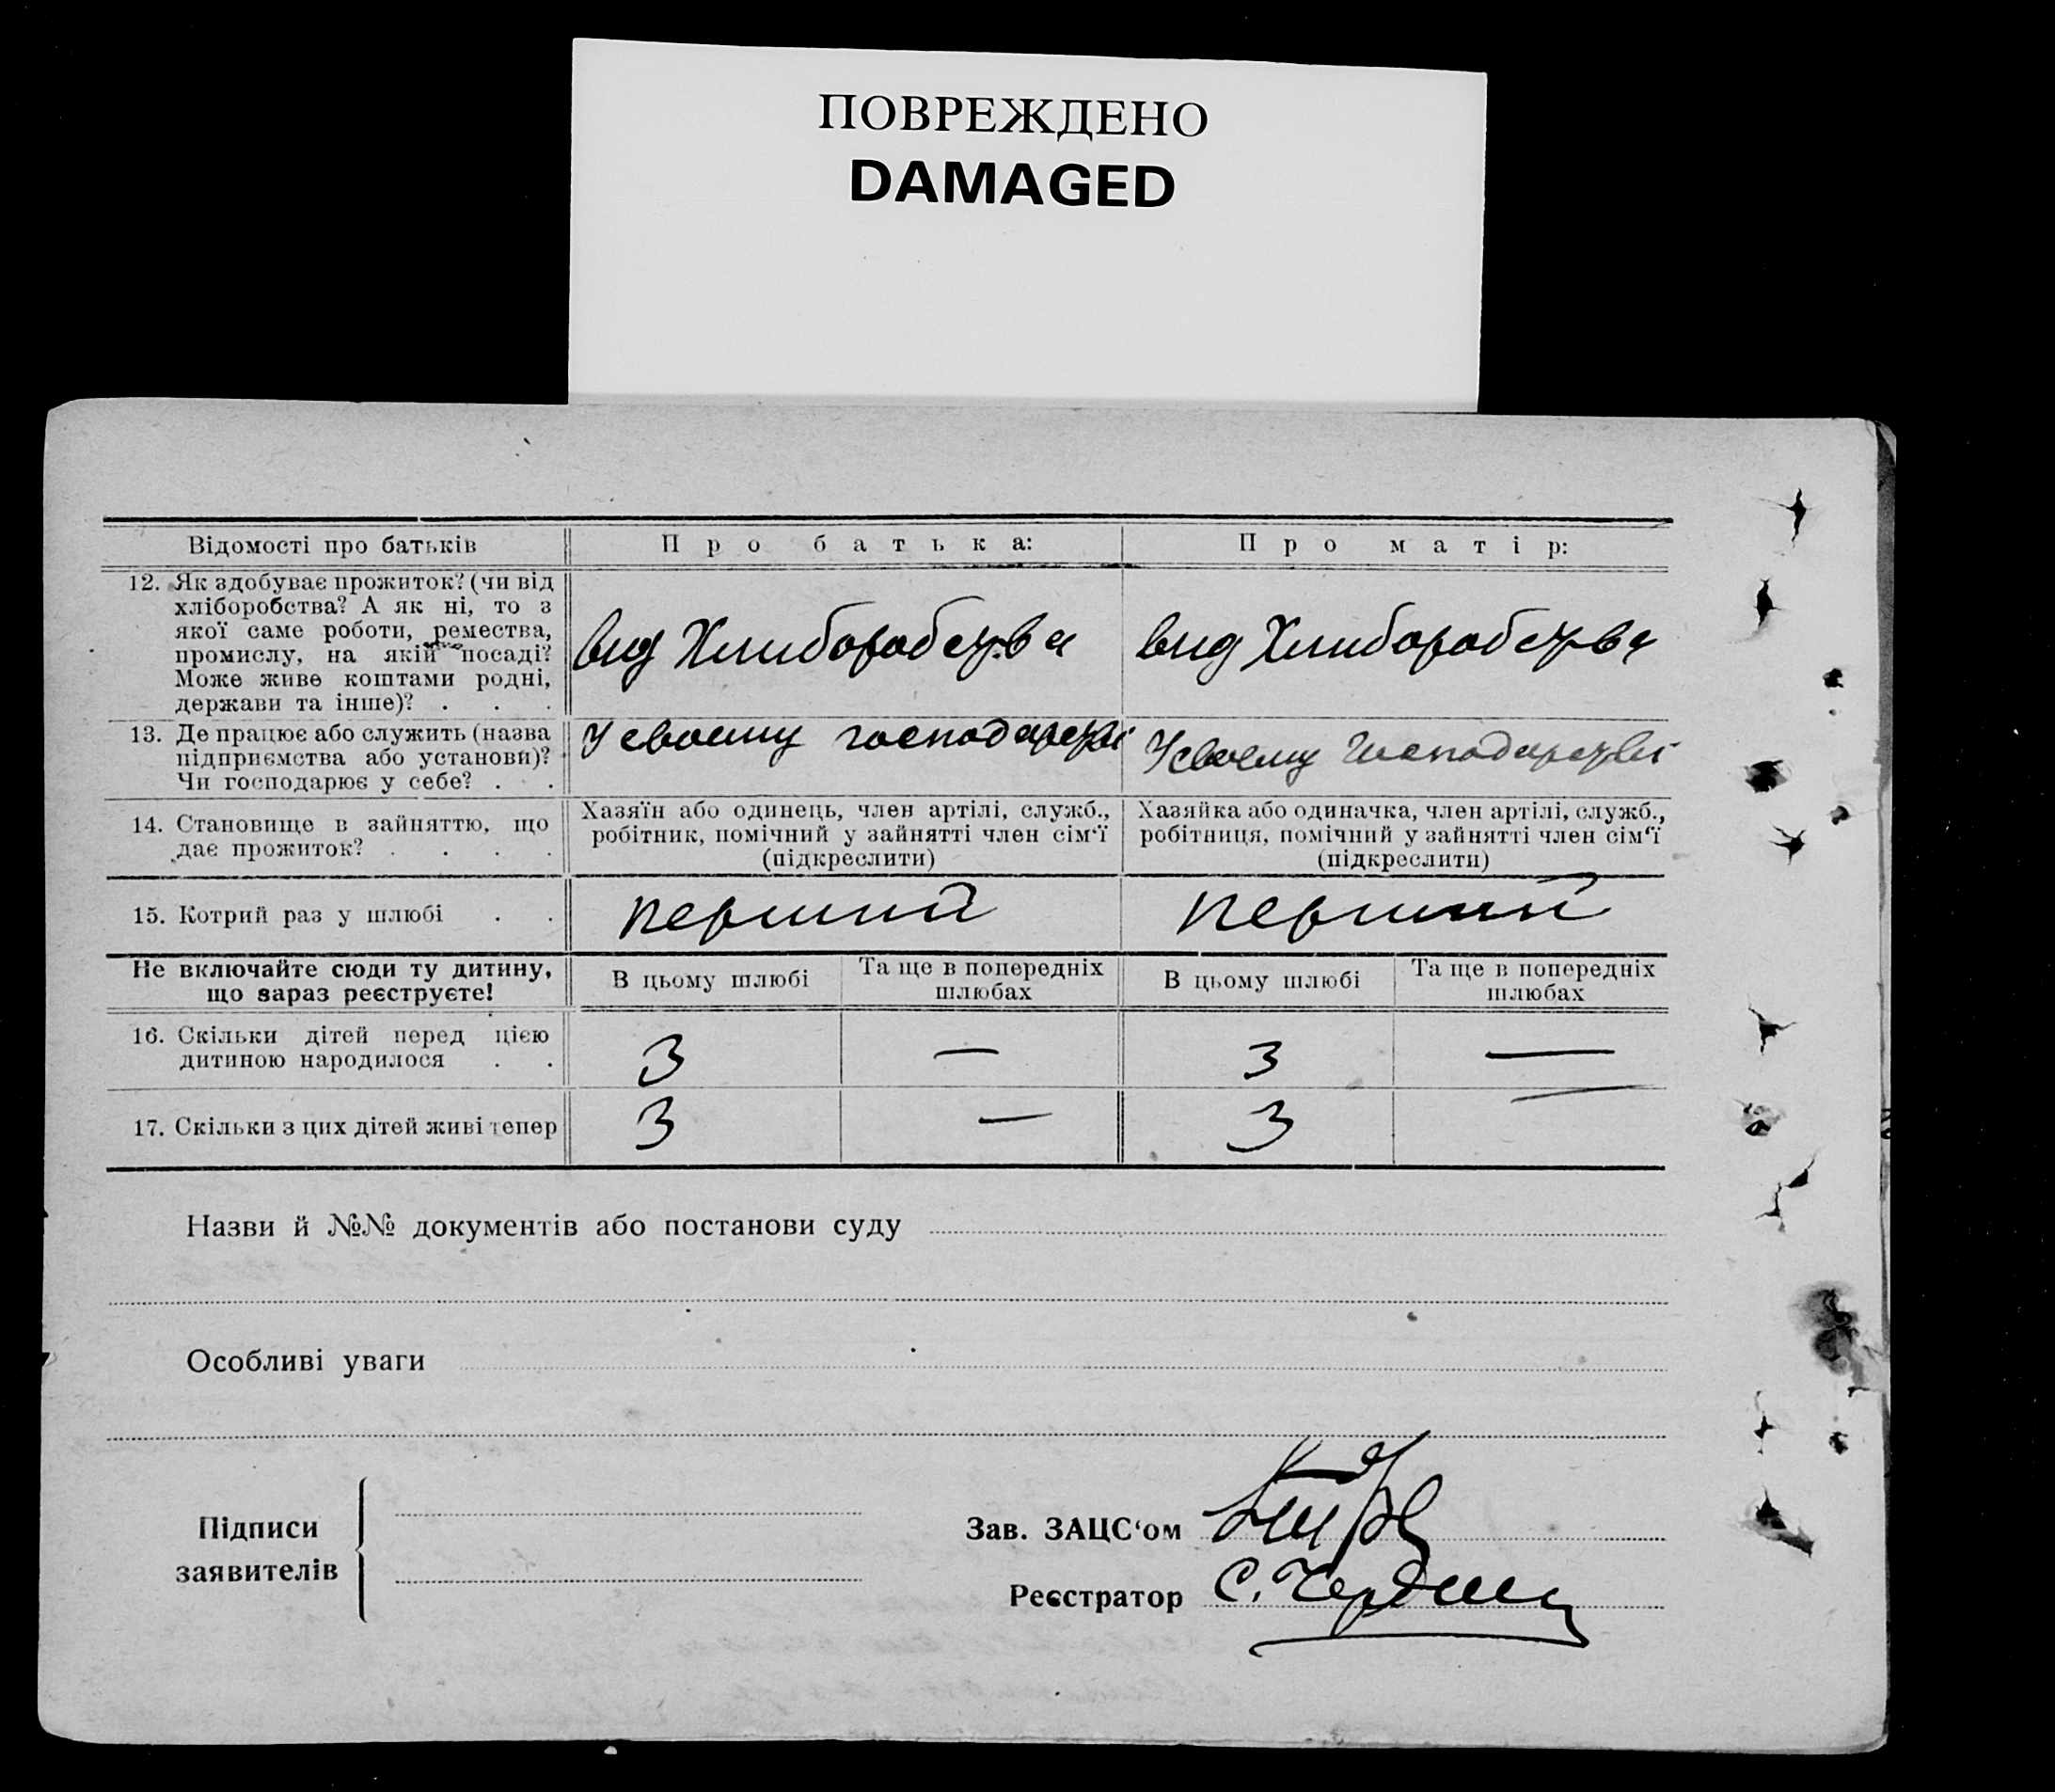 ПОВРЕЖДЕНО
DAMAGED
Відомості про батьків
Про батька:
Про матір:
12. Як здобуває прожиток? (чи від
хліборобства? А як ні, то з
якої саме роботи, ремества,
промислу, на якій посаді?
Може живе коштами родні,
держави та інше)? . . .
вид Хлиборобства
вид Хлиборобства
13. Де працює або служить (назва
підприємства або установи)?
Чи господарює у себе? . .
У своєму господарстві
У своєму господарстві
14. Становище в зайняттю, що
дає прожиток? . . . .
Хазяїн або одинець, член артілі, служб.,
робітник, помічний у зайнятті член сім'ї
(підкреслити)
Хазяйка або одиначка, член артілі, служб.,
робітниця, помічний у зайнятті член сім'ї
(підкреслити)
15. Котрий раз у шлюбі . .
перший
перший
Не включайте сюди ту дитину,
що зараз реєструєте!
В цьому шлюбі
Та ще в попередніх
шлюбах
В цьому шлюбі
Та ще в попередніх
шлюбах
16. Скільки дітей перед цією
дитиною народилося . .
3
—
3
—
17. Скільки з цих дітей живі тепер
3
—
3
—
Назви й №№ документів або постанови суду
Особливі уваги
Підписи
заявителів
Зав. ЗАЦС'ом
Реєстратор С.